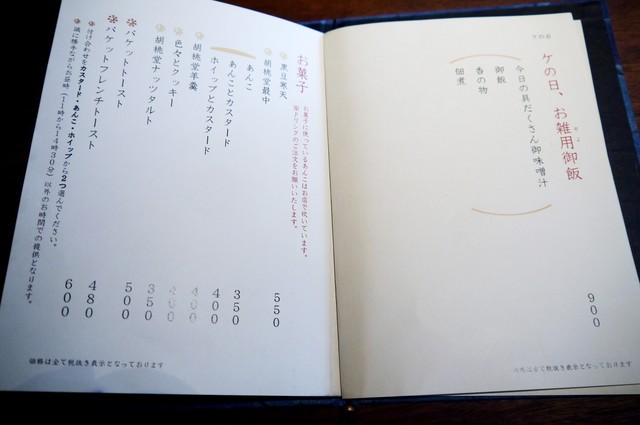 ケの日
ケの日、お雑用御飯
今日の具だくさん御味噌汁
御飯
香の物
佃煮
900
お菓子
お菓子に使っているあんこはお店で炊いています。
※ドリンクのご注文をお願いいたします。
黒豆寒天 550
胡桃堂最中
あんこ 350
あんことカスタード 400
ホイップとカスタード 400
胡桃堂羊羹 400
色々とクッキー 350
胡桃堂ナッツタルト 500
バケットトースト 480
バケットフレンチトースト 600
付け合わせをカスタード・あんこ・ホイップから2つ選んでください。
誠に勝手ながらお昼時(11時から14時30分)以外のお時間での提供となります。
価格は全て税抜き表示となっております